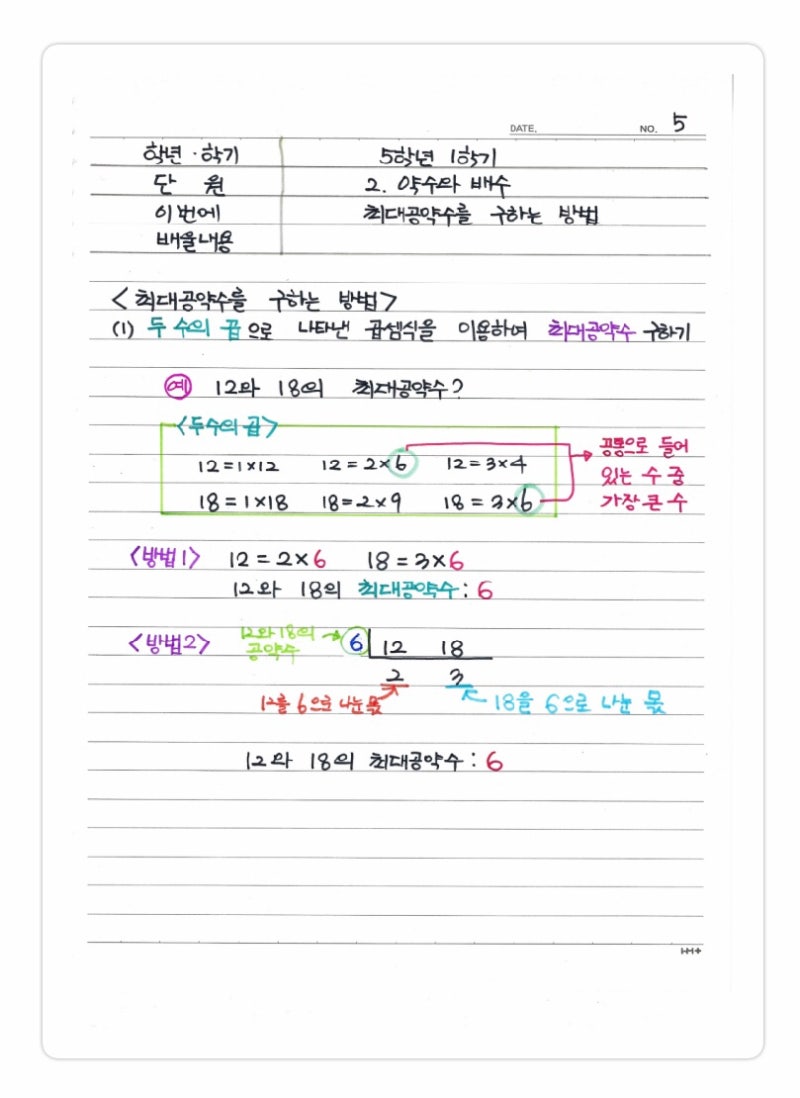 DATE. NO. 5
학년·학기 5학년 1학기
단 원 2. 약수와 배수
이번에 최대공약수를 구하는 방법
배울내용
<최대공약수를 구하는 방법>
(1) 두 수의 곱으로 나타낸 곱셈식을 이용하여 최대공약수 구하기
예 12와 18의 최대공약수?
<두 수의 곱>
12=1×12 12=2×6 12=3×4
18=1×18 18=2×9 18=3×6
공통으로 들어
있는 수 중
가장 큰 수
<방법1> 12=2×6 18=3×6
12와 18의 최대공약수: 6
<방법2> 12와 18의
공약수
6 12 18
2 3
12를 6으로 나눈 몫 18을 6으로 나눈 몫
12와 18의 최대공약수: 6